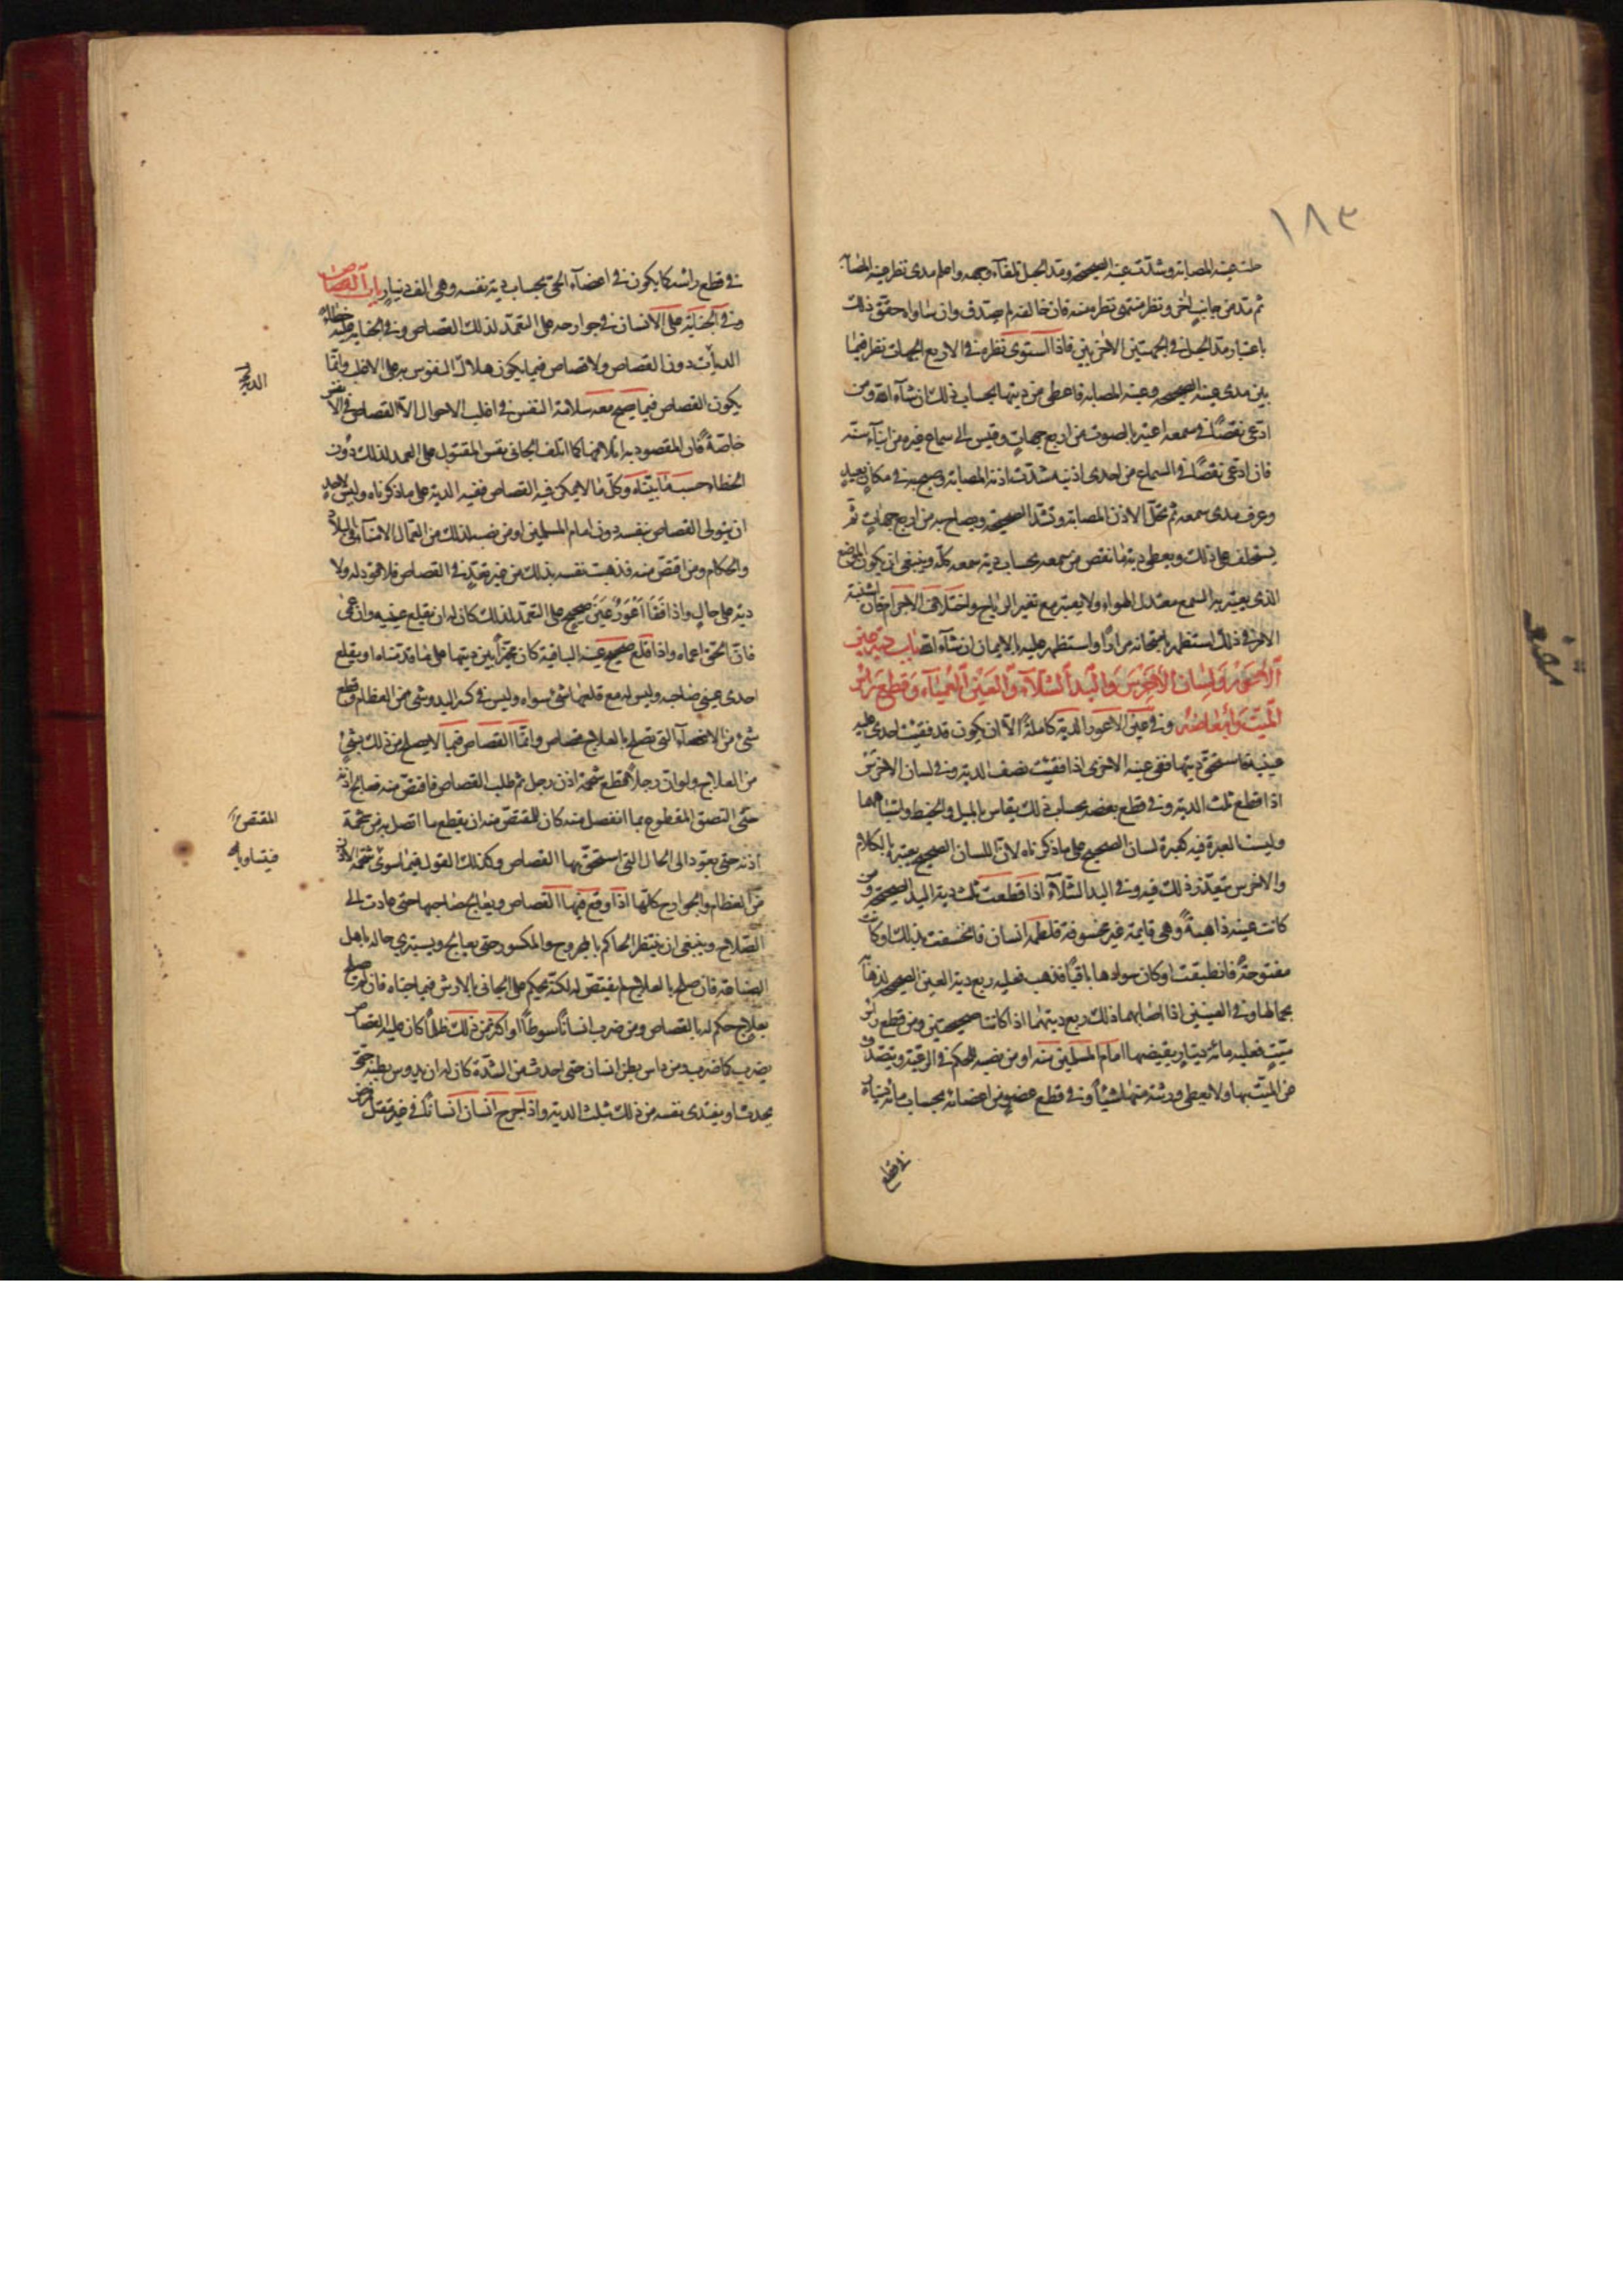 ١٨٣
حلت عينه المصابة وشدّت عينه الصحيحة ومدّ الحبل تلقآء وجهه واعلم مدى نظر عينه المصابة
ثم مدّ من جانب اٰخر ونظر منتهى نظره منه فان خالف لم يصدق وان ساواه حقّق ذلك
باعتبار مدّ الحبل فى الجهتين الاخريين فاذا استوى نظره فى الاربع الجهات نظر فيما
بين مدى عينه الصحيحة وعينه المصابة فاعطى من ديتها بحساب ذلك ان شآء الله ومن
ادّعى نقصًا فى سمعه اعتبر بالصوت من اربع جهات وقيس الى سماع غيره من ابنآء سنّه
فان ادّعى نقصًا فى السماع من احدى اذنيه شدّت اذنه المصابة وصيح به فى مكان بعيد
وعرف مدى سمعه ثم تحلّ الاذن المصابة وتشد الصحيحة ويصاح به من اربع جهات ثمّ
يستحلف على ذلك ويعطى دية ما نقص من سمعه بحساب دية سمعه كلّه وينبغى ان يكون الموضع
الذى يعتبر به السمع معتدل الهواء ولا يعتبر مع تغير الرياح واختلاف الاجرام فان اشتبه
الامر فى ذلك استظهر بامتحانه مرارًا واستظهر عليه بالايمان ان شآء الله باب دية عين
الأعور ولسان الأخرس واليد الشلّآء والعين العميآء وقطع رأس
الميّت وأبعاضه وفى عين الاعور الدية كاملةً الاّ ان يكون قد فقئت احدى عينيه
فاستحقّ ديتها ففى عينه الاخرى اذا فقئت نصف الدية وفى لسان الاخرس
اذا قطع ثلث الدية وفى قطع بعضه بحساب ذلك يقاس بالميل والخيط
وليست العبرة فيه كعبرة لسان الصحيح على ما ذكرناه لانّ اللسان الصحيح يعتبر بالكلام
والاخرس يتعذّر ذلك فيه وفى اليد الشلّآء اذا قطعت ثلث دية اليد الصحيحة ومن
كانت عينه ذاهبةً وهى قايمة غير مخسوفة فلطمه انسان فانخسفت بذلك او كانت
مفتوحةً فانطبقت او كان سوادها باقيًا فذهب فعليه ربع دية العين الصحيحة لذهاب
جمالها وفى العينين اذا اصابهما ذلك ربع ديتهما اذا كانتا صحيحتين ومن قطع رأس
ميّتٍ فعليه مائة دينارٍ يقبضها امام المسلمين منه او من نصبه للحكم فى الرعيّة ويتصدّق
عن الميّت بها ولا يعطى ورثته منها شيئًا وفى قطع عضوٍ من اعضائه بحساب مائة دينار
فى قطع
فى قطع رأسه كما يكون فى اعضآء الحىّ بحساب دية نفسه وهى الف دينار باب القصاص
وفى الجناية على الانسان فى جوارحه على التعمّد لذلك القصاص وفى الجناية عليه خطاءً
الديات دون القصاص ولا قصاص فيما يكون هلاك النفوس به على الاغلب وانّما
يكون القصاص فيما يصح معه سلامة النفس فى اغلب الاحوال الاّ القصاص فى الانفس
خاصّةً فان المقصود به اتلافها كما اتلف الجانى نفس المقتول على العمد لذلك دون
الخطاء حسب ما بيّناه وكلّ ما لا يمكن فيه القصاص ففيه الدية على ما ذكرناه وليس لاحدٍ
ان يتولى القصاص بنفسه دون امام المسلمين او من نصبه لذلك من العمال الامنآء فى البلاد
والحكام ومن اقتصّ منه فذهبت نفسه بذلك من غير تعدٍّ فى القصاص فلا قود له ولا
دية على حالٍ واذا فقأ أعور عين صحيح على التعمّد لذلك كان له ان يقلع عينه وان عمى
فانّ الحقّ اعماه واذا قلع صحيح عينه الباقية كان مخيّرًا بين ديتها على ما قدّمناه او يقلع
احدى عينى صاحبه وليس له مع قلعها شئ سواه وليس فى كسر اليد وشئ من العظام وقطع
شئ من الاعضآء التى تصلح بالعلاج قصاص وانّما القصاص فيما لا يصلح من ذلك بشئ
من العلاج ولو ان رجلاً قطع شحمة اذن رجل ثم طلب القصاص فاقتصّ منه فعالج اذنه
حتّى التصق المقطوع بما انفصل منه كان للمقتصّ منه ان يقطع ما اتصل به من شحمة
اذنه حتى يعود الى الحال التى استحقّ بها القصاص وكذلك القول فيما سوى شحمة الاذن
من العظام والجوارح كلّها اذا وقع فيها القصاص ويعالج صاحبها حتى عادت الى
الصّلاح وينبغى ان ينتظر الحاكم بالمجروح والمكسور حتى يعالج ويستبرى حاله باهل
الصناعة فان صلح بالعلاج لم يقتصّ له لكنّه يحكم على الجانى بالارش فيما جناه فان لم يصلح
بعلاج حكم له بالقصاص ومن ضرب انسانًا سوطًا او اكثر من ذلك ظلمًا كان عليه القصاص
يضرب كما ضرب ومن داس بطن انسان حتى احدث من الشدّة كان له ان يدوس بطنه حتى
يحدث او يفتدى نفسه من ذلك بثلث الدية واذا جرح انسان انسانًا فى غير مقتل
المقتص